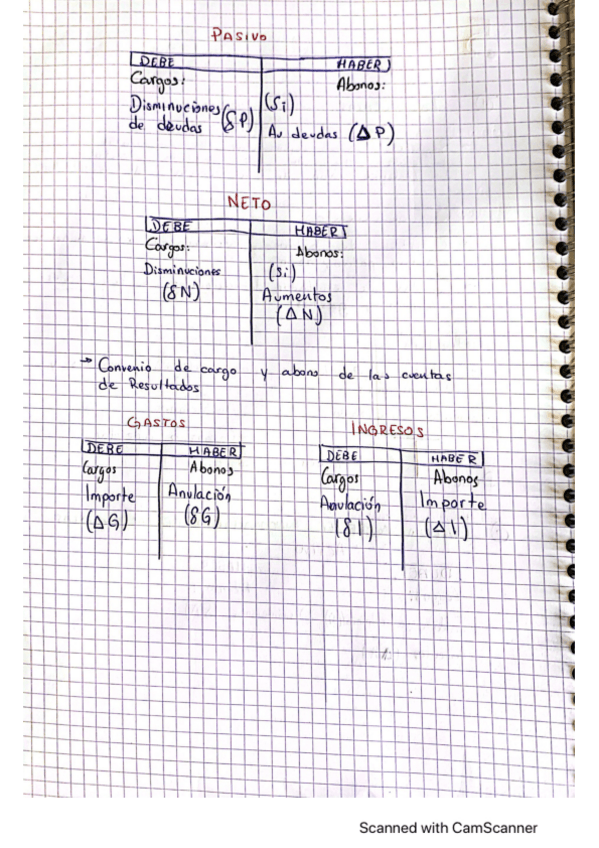 PASIVO
DEBE HABER
Cargos: Abonos:
Disminuciones (δP) (Si)
de deudas Au deudas (Δ P)
NETO
DEBE HABER
Cargos: Abonos:
Disminuciones (Si)
(δN) Aumentos
(Δ N)
→ Convenio de cargo y abono de las cuentas
de Resultados
GASTOS INGRESOS
DEBE HABER DEBE HABER
Cargos Abonos Cargos Abonos
Importe Anulación Anulación Importe
(Δ G) (δG) (δI) (Δ I)
Scanned with CamScanner